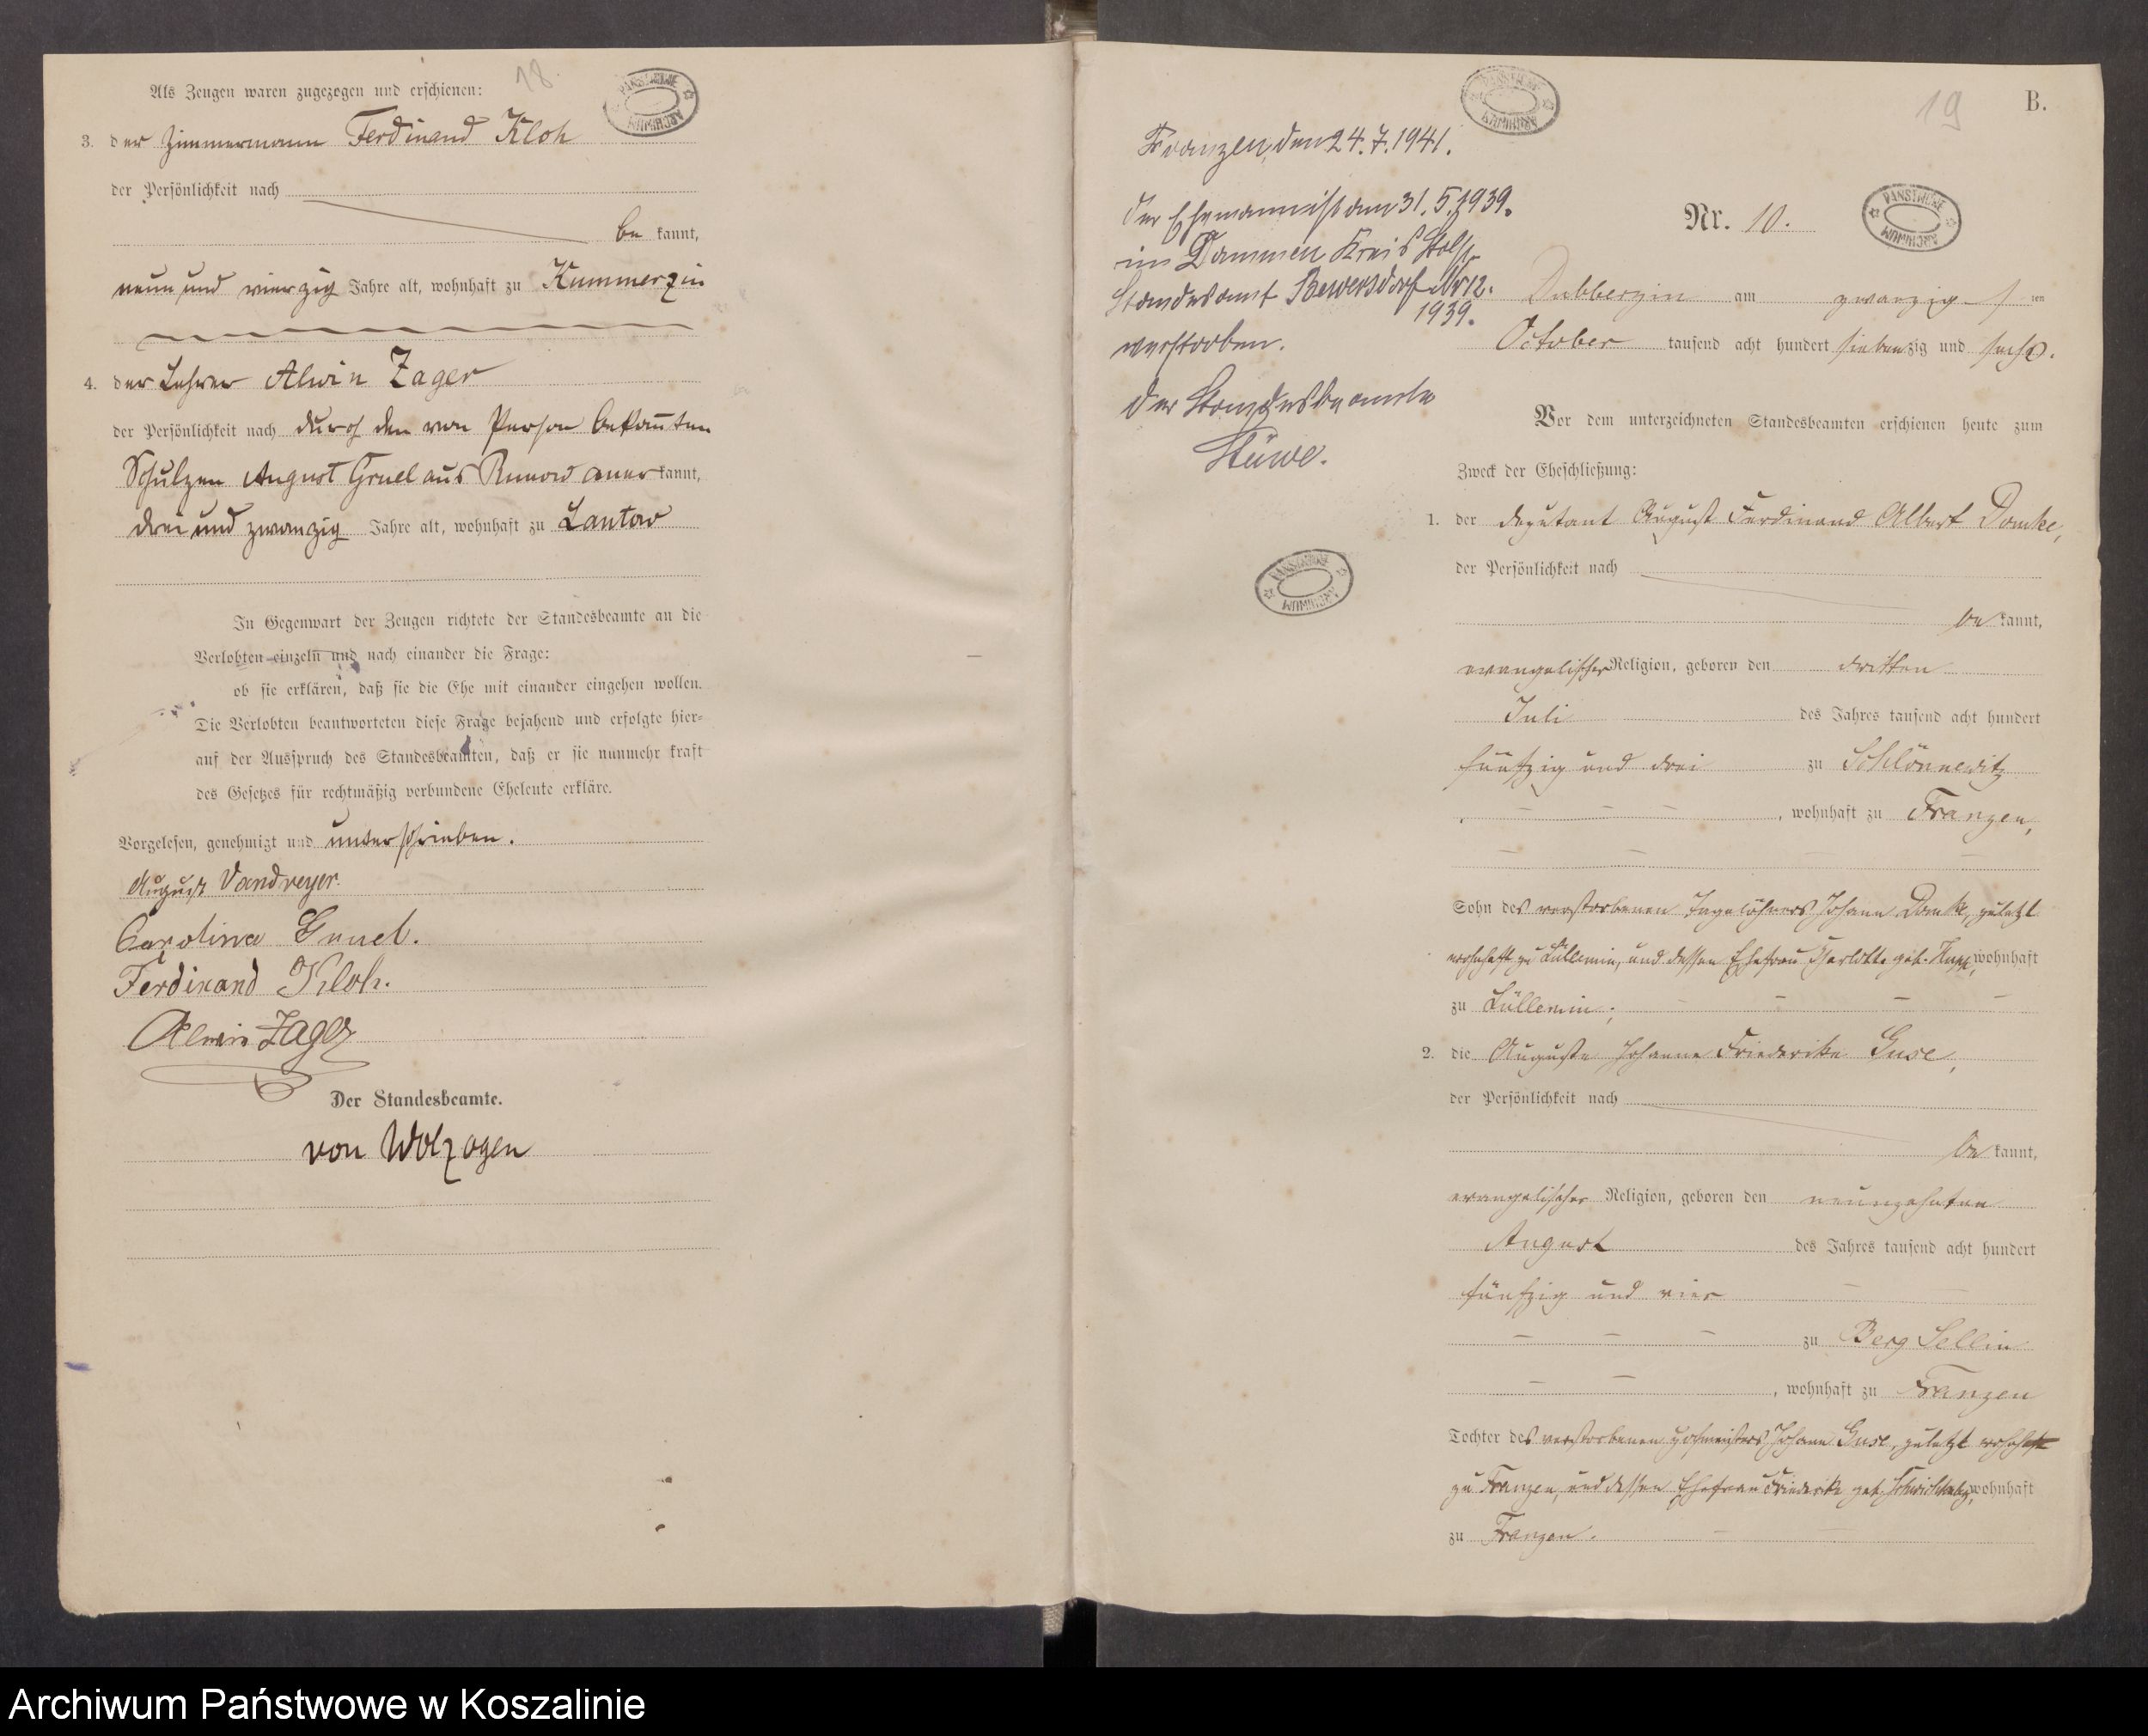 18.
Als Zeugen waren zugezogen und erschienen:
PAŃSTWOWE ARCHIWUM
3. der Zimmermann Ferdinand Kloh
der Persönlichkeit nach
be kannt,
neun und vierzig Jahre alt, wohnhaft zu Kummerzin
4. der Lehrer Alwin Zager
der Persönlichkeit nach durch den von Person bekannten
Schulzen August Gruel aus Runow aner kannt,
drei und zwanzig Jahre alt, wohnhaft zu Lantow
In Gegenwart der Zeugen richtete der Standesbeamte an die
Verlobten einzeln und nach einander die Frage:
ob sie erklären, daß sie die Ehe mit einander eingehen wollen.
Die Verlobten beantworteten diese Frage bejahend und erfolgte hier=
auf der Ausspruch des Standesbeamten, daß er sie nunmehr kraft
des Gesetzes für rechtmäßig verbundene Eheleute erkläre.
Vorgelesen, genehmigt und unterschrieben.
August Vandreyer.
Carolina Gruel.
Ferdinand Kloh.
Alwin Zager
Der Standesbeamte.
von Wolzogen
19
B.
PAŃSTWOWE ARCHIWUM
Franzen, den 24.7.1941.
Der Ehemann ist am 31.5.1939.
in Dammen Kreis Stolp
Standesamt Bewersdorf Nr 12.
1939.
verstorben.
Der Standesbeamte
Stüwe.
PAŃSTWOWE ARCHIWUM
Nr. 10.
PAŃSTWOWE ARCHIWUM
Dubberzin am zwanzigs ten
October tausend acht hundert siebenzig und sechs.
Vor dem unterzeichneten Standesbeamten erschienen heute zum
Zweck der Eheschließung:
1. der Deputant August Ferdinand Albert Domke,
der Persönlichkeit nach
be kannt,
evangelischer Religion, geboren den dritten
Juli des Jahres tausend acht hundert
fünfzig und drei zu Schlönnewitz
, wohnhaft zu Franzen,
Sohn des verstorbenen Tagelöhners Johann Domke, zuletzt
wohnhaft zu Lüllemin, und dessen Ehefrau Charlotte geb. wohnhaft
zu Lüllemin;
2. die Auguste Johanne Friederike Guse,
der Persönlichkeit nach
be kannt,
evangelischer Religion, geboren den neunzehnten
August des Jahres tausend acht hundert
fünfzig und vier
zu Berg Sellin
, wohnhaft zu Franzen
Tochter des verstorbenen Hofmeisters Johann Guse, zuletzt wohnhaft
zu Franzen, und dessen Ehefrau Friederike geb. wohnhaft
zu Franzen.
Archiwum Państwowe w Koszalinie